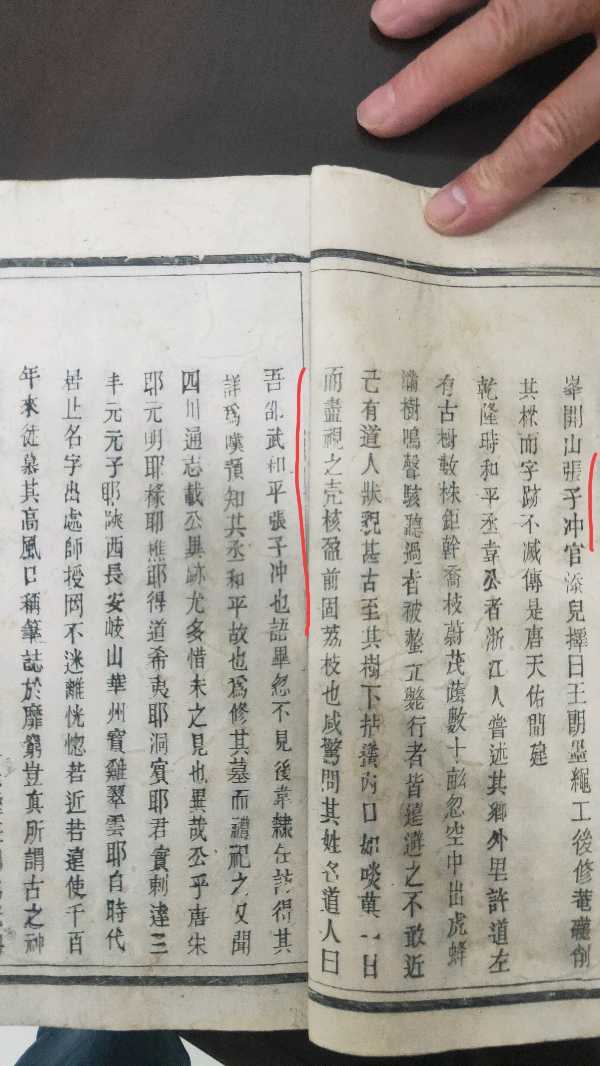 峯開山張子冲官添兒擇日王朗墨繩工後修菴礲削
其樑而字跡不滅傳是唐天佑間建
乾隆時和平丞韋公者浙江人嘗述其鄉外里許道左
有古樹數株鉅幹喬枝蔚茂蔭數十畝忽空中出虎蜂
滿樹鳴聲駭聽過者被螫立斃行者皆遠避之不敢近
已有道人狀貌甚古至其樹下拈攓丙口如啖菓一日
而盡視之壳核盈前固荔枝也咸驚問其姓名道人曰
吾邵武和平張子冲也語畢忽不見後韋隷任訪得其
詳爲嘆預知其丞和平故也爲修其墓而禮祀之又聞
四川通志載公異跡尤多惜未之見也異哉公乎唐宋
耶元明耶樑耶樵耶得道希夷耶洞賓耶君實刺達三
丰元元子耶陝西長安岐山華州寶雞翠雲耶自時代
居止名字出處師授罔不迷離恍惚若近若遠使千百
年來徒慕其高風口稱筆誌於靡窮豈真所謂古之神